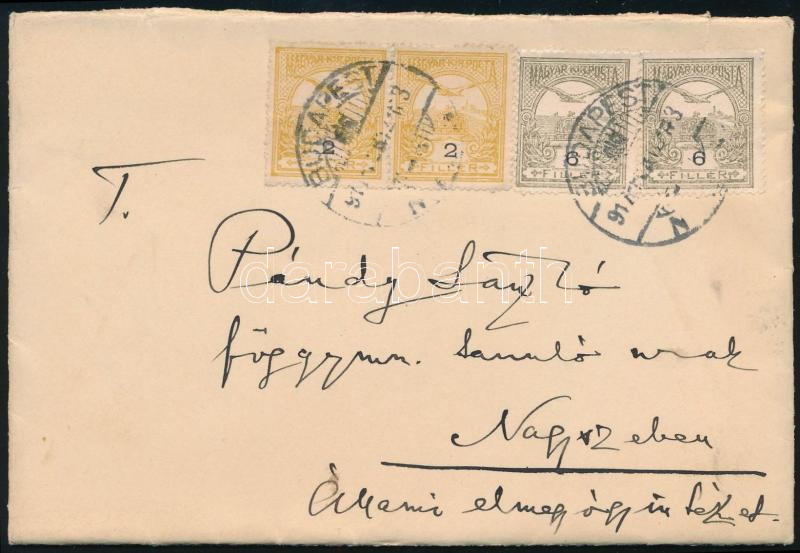 MAGYAR KIR. POSTA MAGYAR KIR. POSTA MAGYAR KIR. POSTA MAGYAR KIR. POSTA
2 2 6 6
FILLÉR FILLÉR FILLÉR FILLÉR
BUDAPEST BUDAPEST
T.
Pándy László
főggymn. tanuló urnak
Nagyszeben
Állami elmegyógyintézet.
darabanth